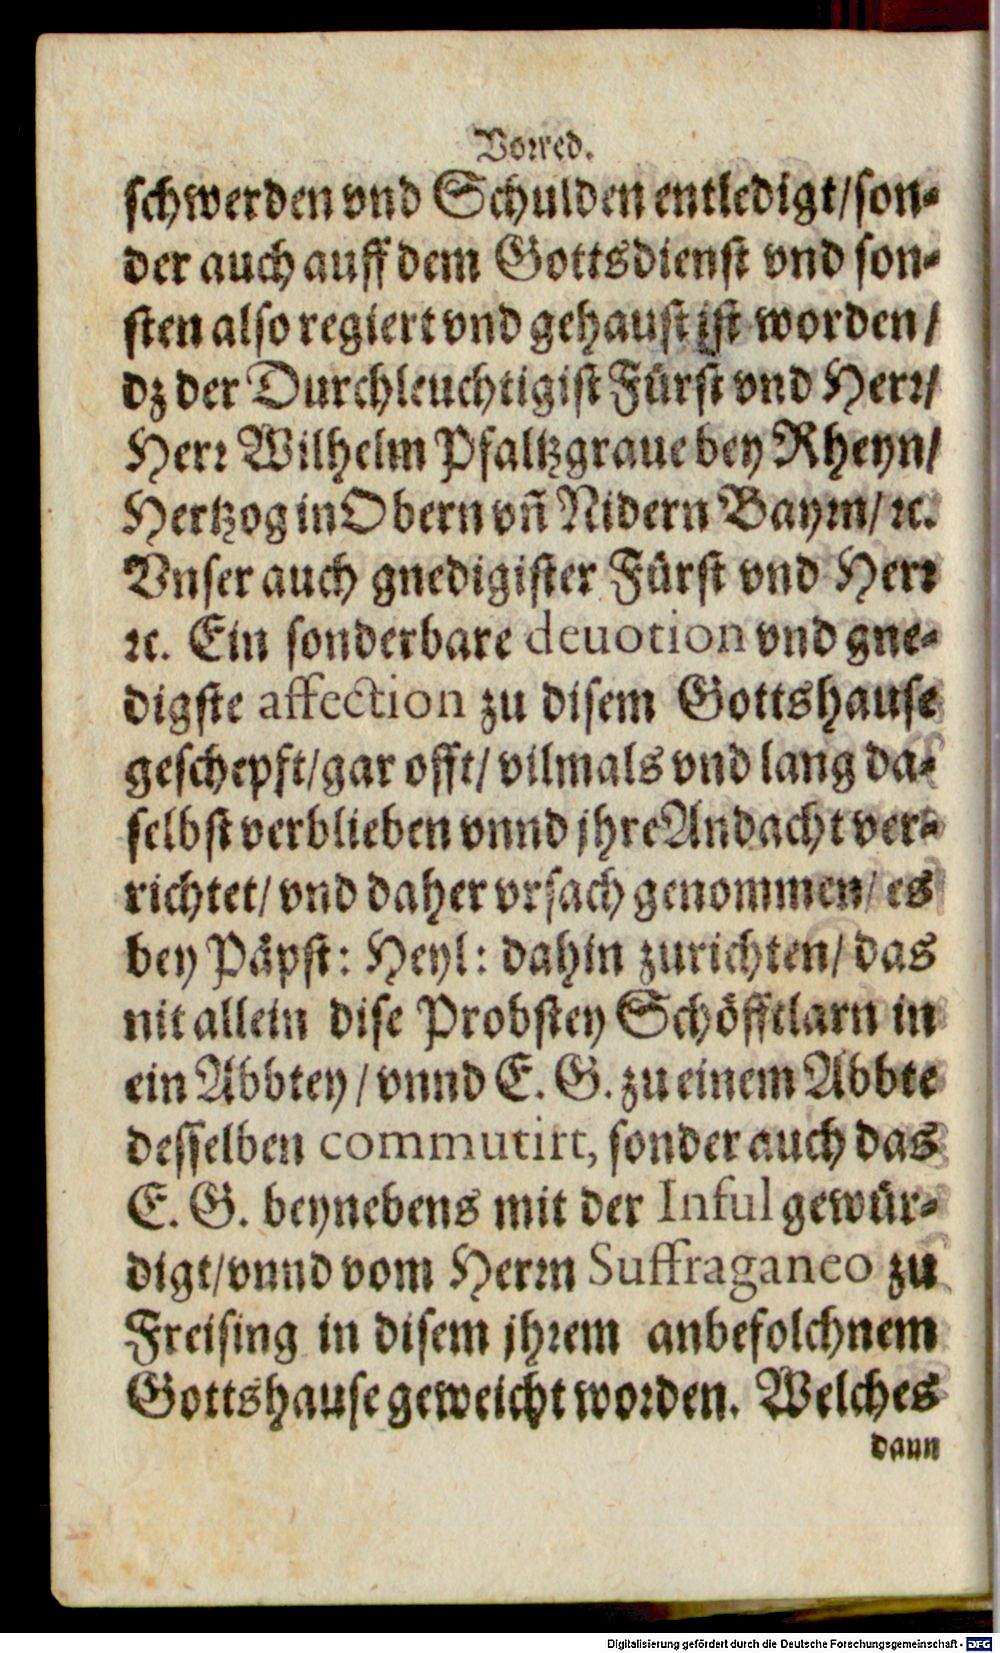 Vorred.
schwerden vnd Schulden entledigt/son-
der auch auff dem Gottsdienst vnd son-
sten also regiert vnd gehaust ist worden/
dz der Durchleuchtigist Fürst vnd Herr/
Herr Wilhelm Pfaltzgraue bey Rheyn/
Hertzog in Obern vñ Nidern Bayrn/ ꝛc.
Vnser auch gnedigister Fürst vnd Herr
ꝛc. Ein sonderbare deuotion vnd gne-
digste affection zu disem Gottshause
geschepft/gar offt/ vilmals vnd lang da-
selbst verblieben vnnd jhre Andacht ver-
richtet/ vnd daher vrsach genommen/ es
bey Päpst: Heyl: dahin zurichten/ das
nit allein dise Probstey Schöfftlarn in
ein Abbtey/ vnnd E. G. zu einem Abbte
desselben commutirt, sonder auch das
E. G. beynebens mit der Inful gewür-
digt/vnnd vom Herrn Suffraganeo zu
Freising in disem jhrem anbefolchnem
Gottshause geweicht worden. Welches
dann
Digitalisierung gefördert durch die Deutsche Forschungsgemeinschaft - DFG